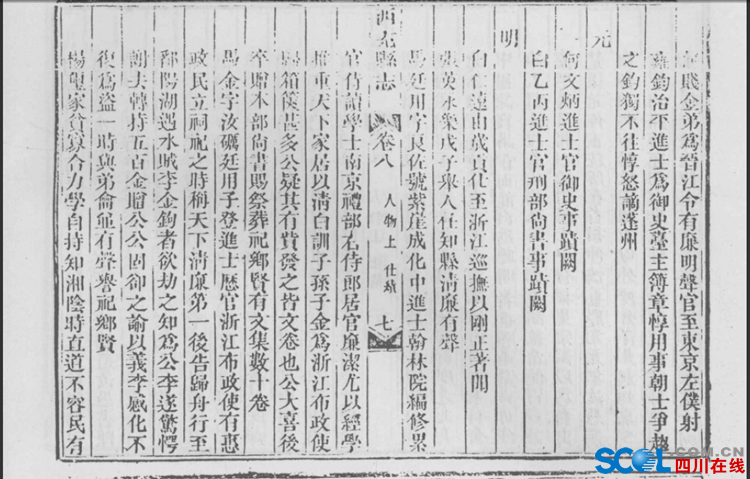 賜金弟爲晉江令有廉明聲官至東京左僕射
雍鈞治平進士爲御史臺主簿章惇用事朝士爭趨
之鈞獨不往惇怒謫蓬州
元
何文炳進士官御史事蹟闕
白乙丙進士官刑部尚書事蹟闕
明
白仁達由歲貢仕至浙江巡撫以剛正著聞
張英永樂戊子舉人任知縣清廉有聲
馬廷用字良佐號紫崖成化中進士翰林院編修累
西充縣志 卷八 人物上 仕績 七
官侍讀學士南京禮部右侍郎居官廉潔尤以經學
推重天下家居以清白訓子孫子金爲浙江布政使
歸箱篋甚多公疑其有貲發之皆文卷也公大喜後
卒贈本部尚書賜祭葬祀鄉賢有文集數十卷
馬金字汝礪廷用子登進士歷官浙江布政使有惠
政民立祠祀之時稱天下清廉第一後告歸舟行至
鄱陽湖遇水賊李金鉤者欲劫之知爲公李遂驚愕
朝夫轉持五百金贈公公固卻之諭以義李感化不
復爲盜一時與弟侖並有聲譽祀鄉賢
楊璽家貧算合力學自持知湘陰時直道不容民有
SCOL.COM.CN
四川在线